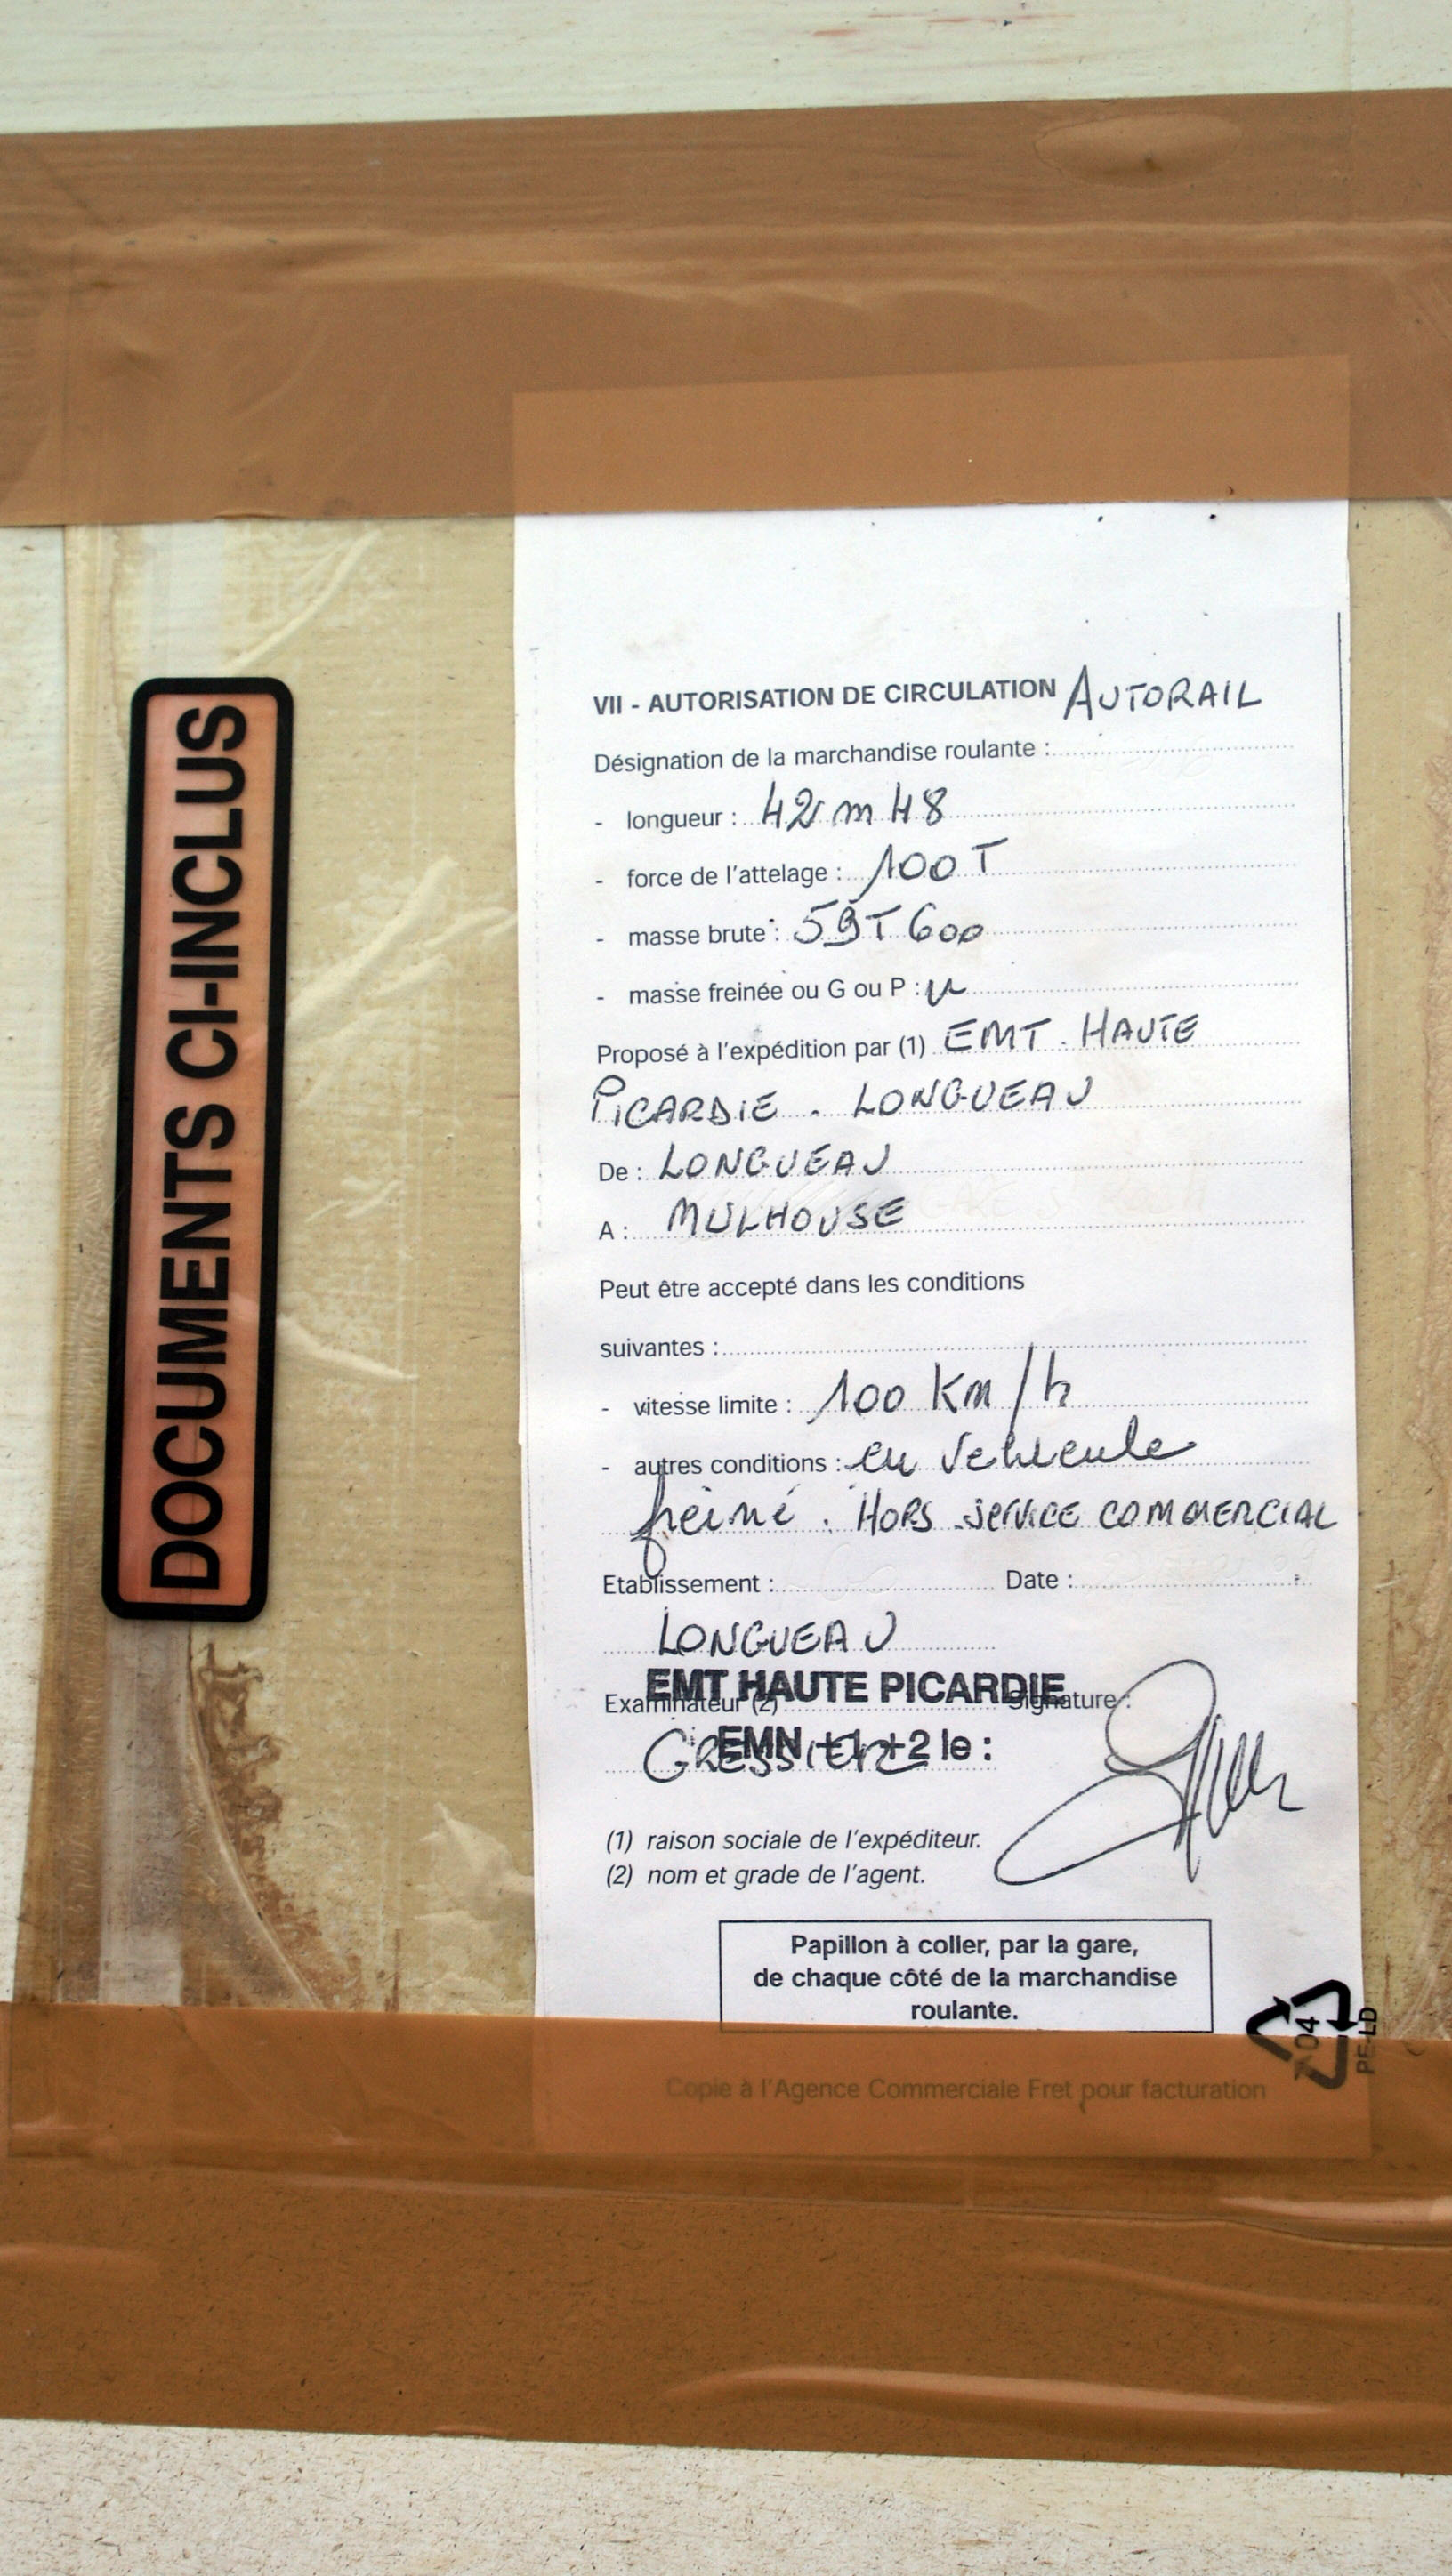 DOCUMENTS CI-INCLUS
VII - AUTORISATION DE CIRCULATION AUTORAIL
Désignation de la marchandise roulante :
- longueur : 42 m 48
- force de l'attelage : 100 T
- masse brute : 59T 600
- masse freinée ou G ou P :
Proposé à l'expédition par (1) EMT. HAUTE
PICARDIE. LONGUEAU
De : LONGUEAU
A : MULHOUSE
Peut être accepté dans les conditions
suivantes :
- vitesse limite : 100 Km/h
- autres conditions : en véhicule
freiné. HORS SERVICE COMMERCIAL
Etablissement : Date :
LONGUEAU
EMT HAUTE PICARDIE
Examinateur (2) Signature :
EMN +1 +2 le :
(1) raison sociale de l'expéditeur.
(2) nom et grade de l'agent.
Papillon à coller, par la gare,
de chaque côté de la marchandise
roulante.
Copie à l'Agence Commerciale Fret pour facturation
04
PE-LD